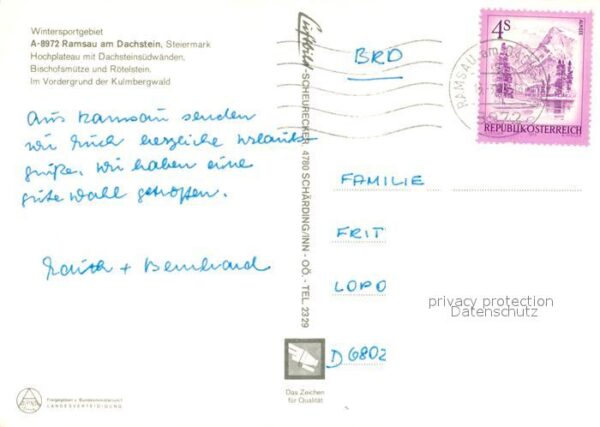 Wintersportgebiet
A-8972 Ramsau am Dachstein, Steiermark
Hochplateau mit Dachsteinsüdwänden,
Bischofsmütze und Rötelstein.
Im Vordergrund der Kulmbergwald
Aus Ramsau senden
wir Euch herzliche Urlaubs-
grüße. Wir haben eine
gute Wahl getroffen.
Edith + Bernhard
Luftbild
SCHEURECKER, 4780 SCHÄRDING/INN - OÖ. - TEL. 2329
Das Zeichen
für Qualität
Freigegeben v. Bundesministerium f.
LANDESVERTEIDIGUNG
BRD
4S
ALMSEE
REPUBLIK ÖSTERREICH
RAMSAU am DACHST
8972
FAMILIE
FRIT
LOPO
D 6802
privacy protection
Datenschutz